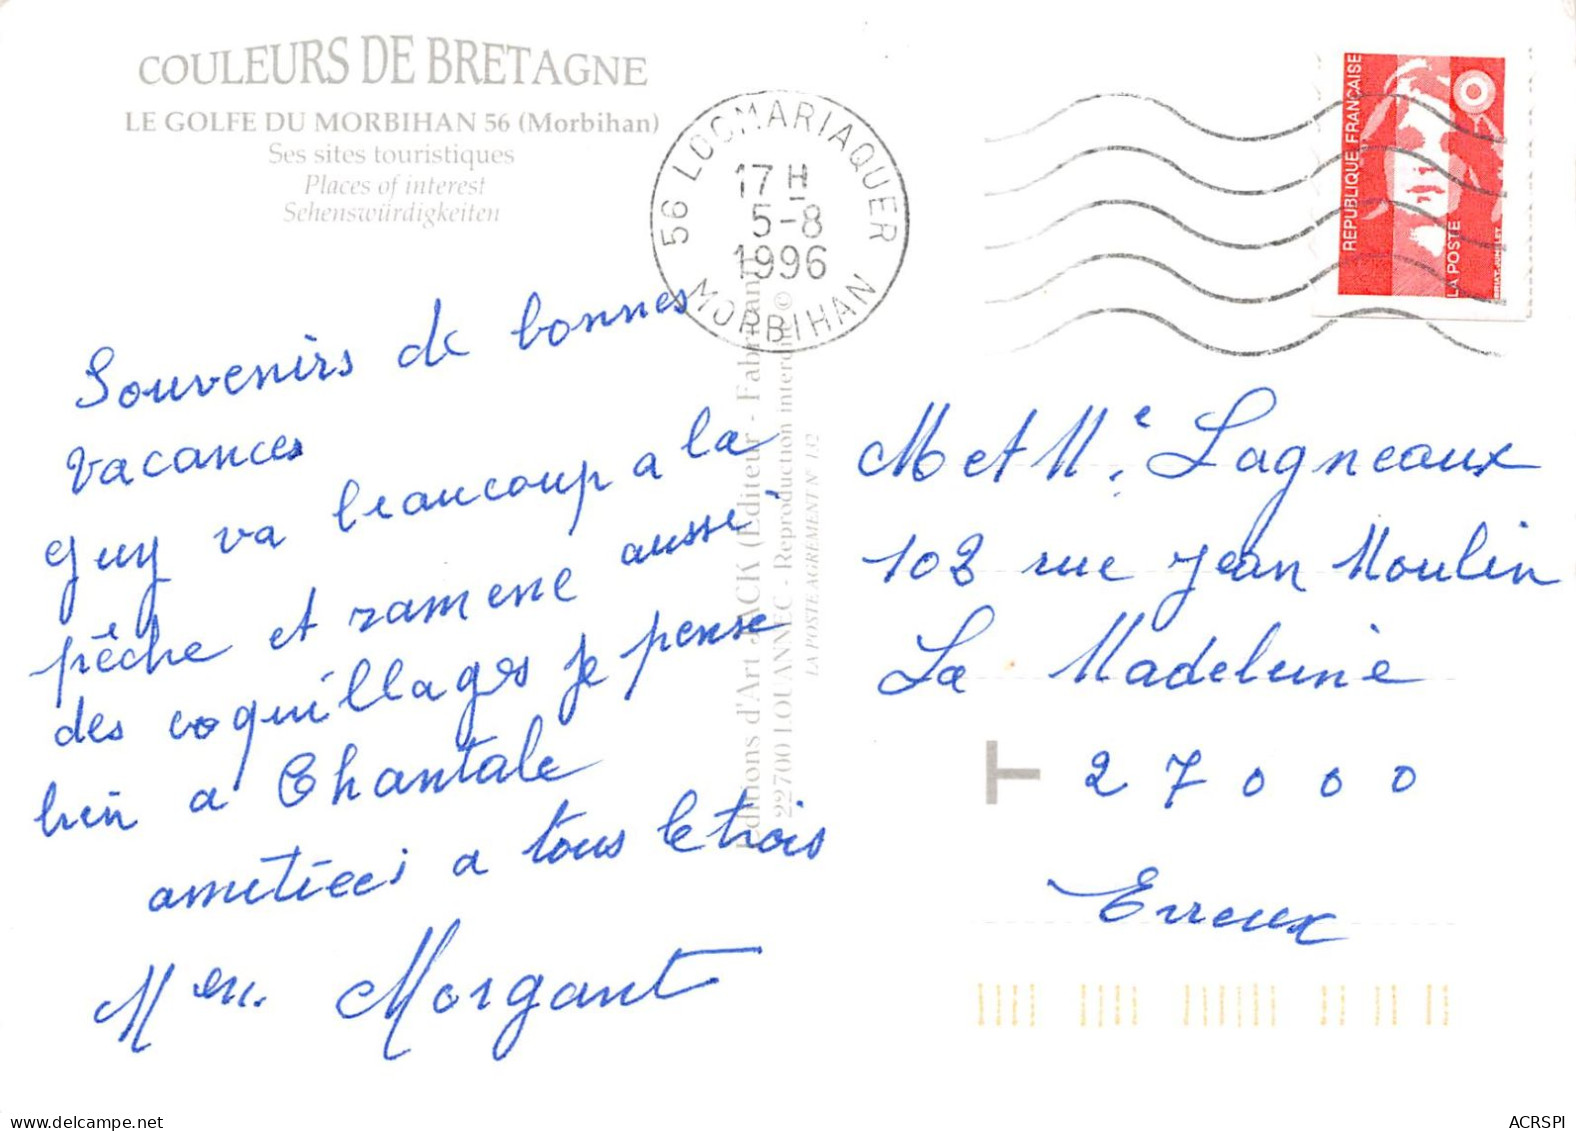 COULEURS DE BRETAGNE
LE GOLFE DU MORBIHAN 56 (Morbihan)
Ses sites touristiques
Places of interest
Sehenswürdigkeiten
56 LOCMARIAQUER
17 H
5-8
1996
MORBIHAN
RÉPUBLIQUE FRANÇAISE
LA POSTE
Souvenirs de bonnes
vacances
guy va beaucoup a la
pêche et ramene aussi
des coquillages je pense
bien a Chantale
amitiées a tous le trois
Morgant
Editions d'Art JACK (Editeur - Fabricant)
22700 LOUANNEC - Reproduction interdite ©
LA POSTE AGREMENT N° 132
M et Me. Lagneaux
102 rue Jean Moulin
La Madeleine
T 27000
Evreux
ACRSPI